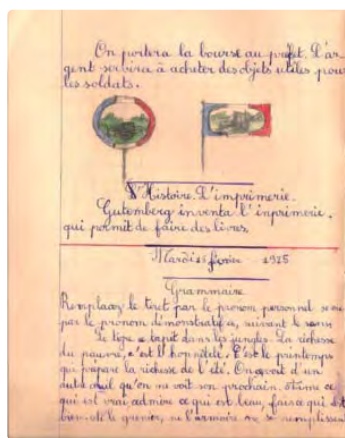 On portera la bourse au préfet. L'ar-
gent servira à acheter des objets utiles pour
les soldats.
L'Histoire. L'imprimerie.
Gutemberg inventa l'inprimerie.
qui permit de faire des livres.
Mardi 16 février 1915
Grammaire
Remplacez le tiret par le pronom personnel se ou
par le pronom démonstratif ce, suivant le sens
Le tigre se tapit dans les jungles. La richesse
du pauvre, c'est l'honnêteté. C'est le printemps
qui prépare la richesse de l'été. On a voit d'un
autre œil qu'on ne voit son prochain. Aime ce
qui est vrai admire ce qui est beau, fais ce qui est
bien. Ni le grenier, ni l'armoire ne se remplissent